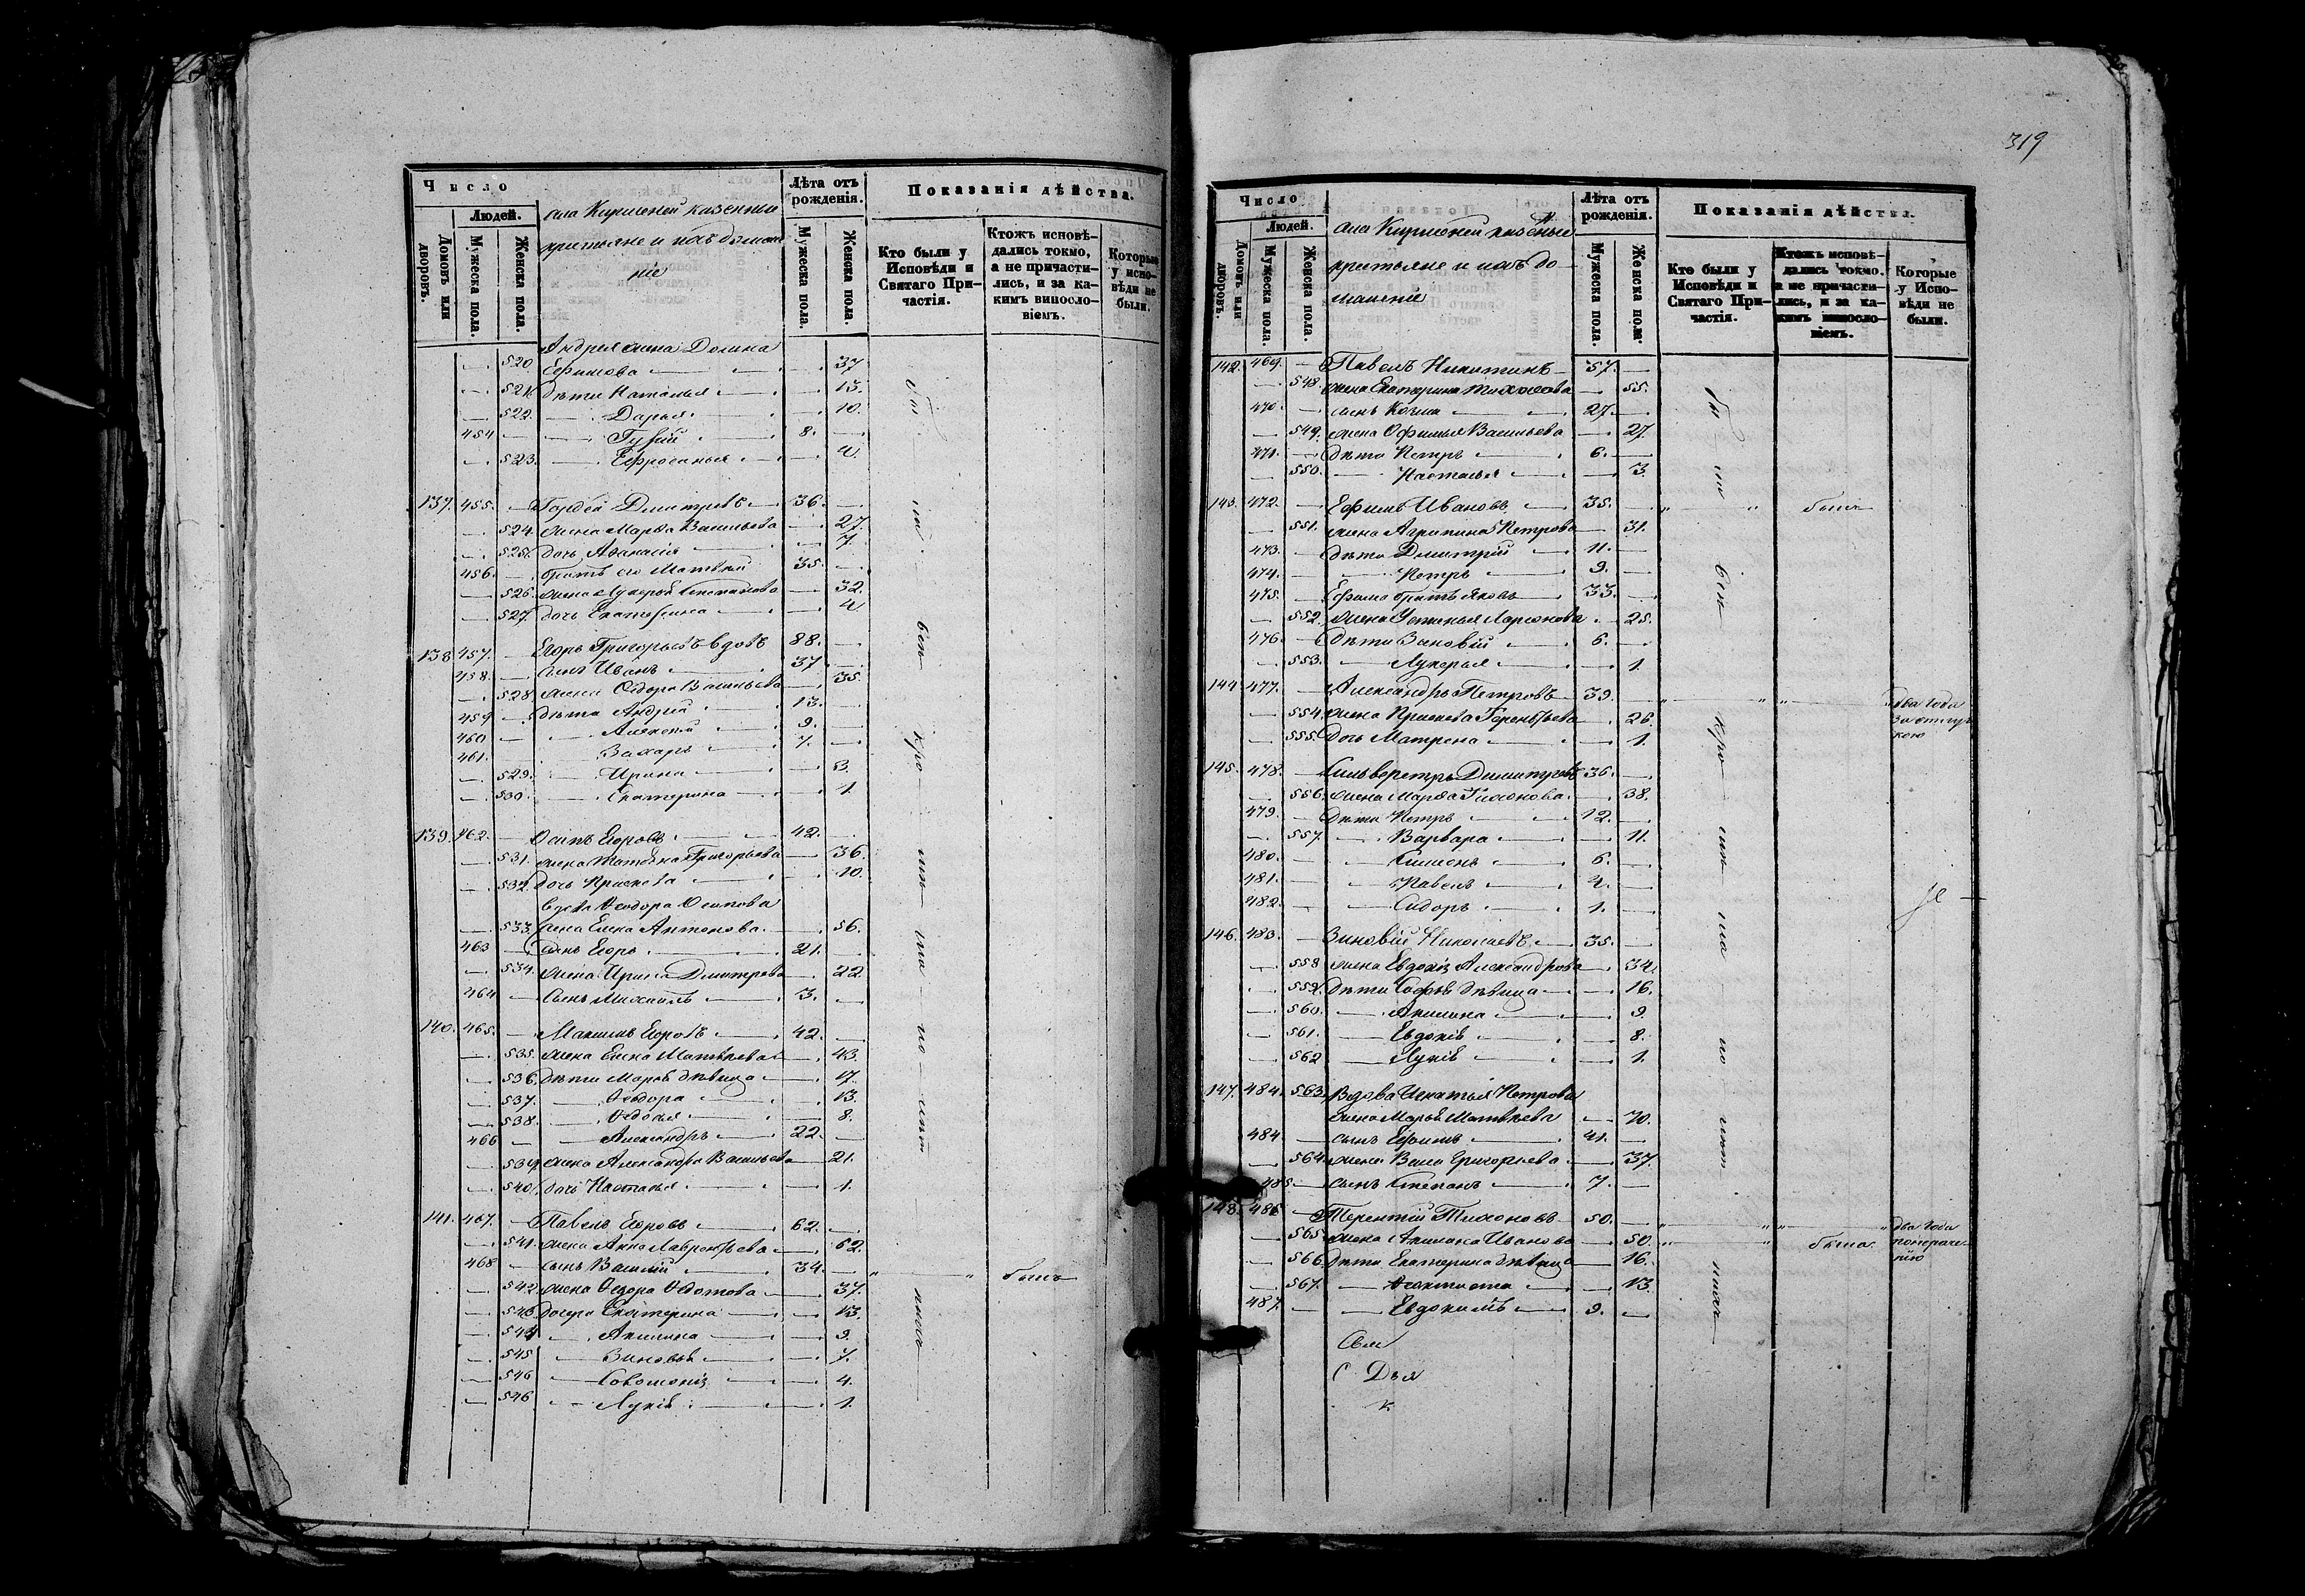 Число
Людей.
Домовъ или дворовъ.
Мужеска пола.
Женска пола.
села Кирменей казенные
крестьяне и ихъ домаш
ніе
Лѣта отъ рожденія.
Мужеска пола.
Женска пола.
Показанія дѣйства.
Кто были у Исповѣди и Святаго Причастія.
Ктожъ исповѣдались токмо, а не причастились, и за какимъ винословіемъ.
Которые у исповѣди не были.
Андрея жена Домна
520 Ефимова 37
521 дѣти Наталья 13.
522. Дарья 10.
454 Гурій 8.
523. Ефросинья 4.
137. 455. Гордѣй Дмитріевъ 36.
524. жена Марѳа Васильева 27.
525. дочь Аѳанасія 7.
456. братъ его Матвѣй 35.
526. жена Лукерья Степанова 32.
527. дочь Екатерина 4
138 457. Егоръ Григорьевъ вдовъ 88.
458. сынъ Иванъ 37
528 жена Ѳедора Васильева 35.
459 дѣти Андрей 13.
460 Алексѣй 9.
461. Захаръ 7.
529. Ирина 3.
530. Екатерина 1.
139. 462. Осипъ Егоровъ 42.
531. жена Татьяна Григорьева 36.
532. дочь Прасковья 10.
вдова Ѳеодора Осипова
533. жена Елена Антонова 56.
463 сынъ Егоръ 21.
534. жена Ирина Дмитрева 22.
464 сынъ Михаилъ 3.
140. 465. Максимъ Егоровъ 42.
535. жена Елена Матвѣева 43.
536. дѣти Марья дѣвица 17.
537. Ѳеодора 13.
538. Ѳедосья 8.
466 Александръ 22.
539. жена Александра Васильева 21.
540. дочь Настасья 1.
141. 467. Павелъ Егоровъ 62.
541. жена Анна Лаврентьева 62.
468 сынъ Василій 34. былъ
542. жена Ѳедора Ѳедотова 37.
543. дочери Екатерина 13.
544 Акилина 9.
545 Зиновья 7.
546 Соломонія 4.
546 Лукія 1.
319
Число
Людей.
Домовъ или дворовъ.
Мужеска пола.
Женска пола.
села Кирменей казенные
крестьяне и ихъ до-
машніе
Лѣта отъ рожденія.
Мужеска пола.
Женска пола.
Показанія дѣйства.
Кто были у Исповѣди и Святаго Причастія.
Ктожъ исповѣдались токмо. а не причастились, и за какимъ винословіемъ.
Которые у Исповѣди не были.
142. 469. Павелъ Никитинъ 57.
548. жена Екатерина Тихонова 55.
470. сынъ Козма 27.
549. жена Офимья Васильева 27.
471. дѣти Петръ 6.
550. Настасья 3.
143. 472. Ефимъ Ивановъ 35. былъ
551. жена Агрипина Петрова 31.
473. дѣти Димитрій 11.
474. Петръ 9.
475. Ефима братъ Яковъ 33.
552. жена Устинья Ларионова 25.
476. дѣти Зиновій 6.
553. Лукерья 1.
144. 477. Александръ Петровъ 39. два года
554. жена Прасковья Герентьева 26. за отлуч
555. дочь Матрена 1. кою
145. 478. Сильверстръ Димитровъ 36.
556. жена Марѳа Тихонова 38.
479. дѣти Петръ 12.
557. Варвара 11.
480. Симеонъ 6.
481. Павелъ 4.
482. Сидоръ 1.
146. 483. Зиновій Николаевъ 35.
558 жена Евдокія Александрова 34.
559. дѣти Софья дѣвица 16.
560. Акилина 9.
561. Евдокія 8.
562 Лукія 1.
147. 484. 563. Вдова Игнатья Петрова
жена Марья Матвѣева 70.
484. сынъ Ефимъ 41.
564. жена Васа Григорьева 37.
485 сынъ Степанъ 7.
148. 486 Терентій Тихоновъ 50. два года
565. жена Акилина Иванова 50. была нонерачe-
566. дѣти Екатерина дѣвица 16. нію
567. Ѳеоктиста 13.
487. Евдокимъ 9.